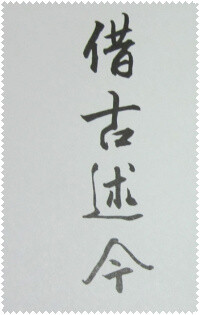 借古述今